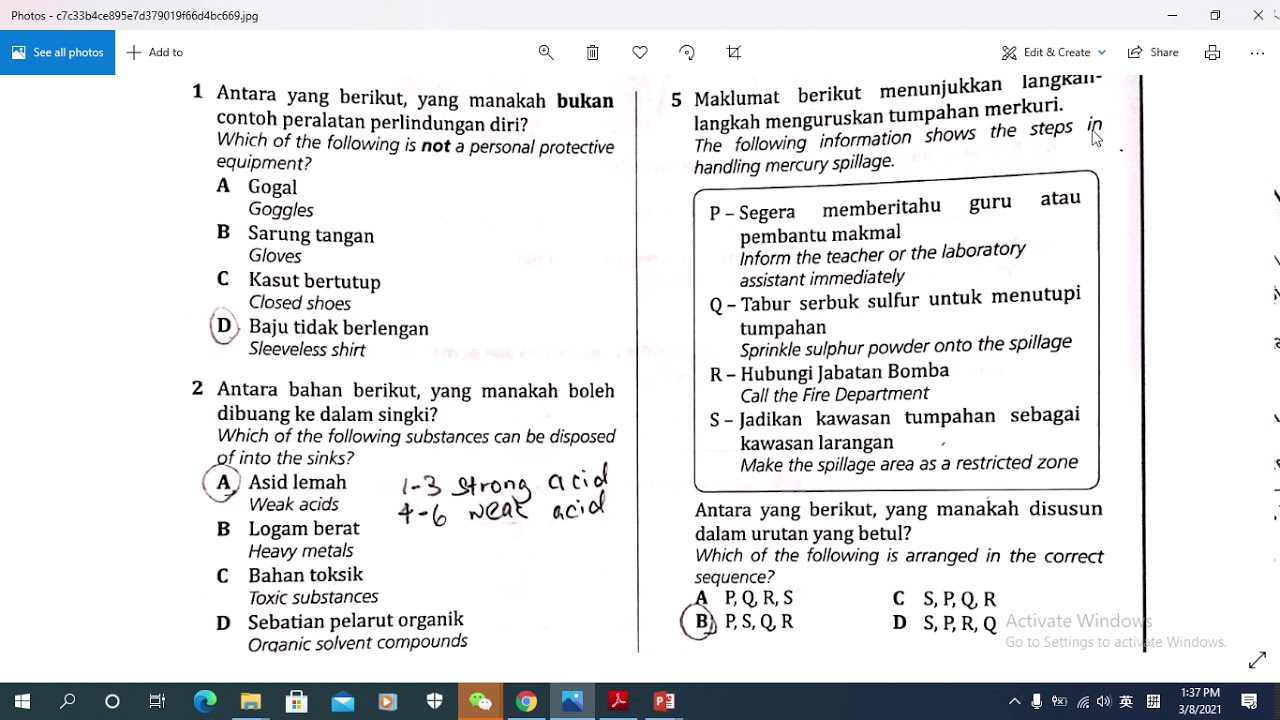 Photos - c7c33b4ce895e7d379019f66d4bc669.jpg
See all photos
Add to
Edit & Create
Share
1 Antara yang berikut, yang manakah bukan
contoh peralatan perlindungan diri?
Which of the following is not a personal protective
equipment?
A Gogal
Goggles
B Sarung tangan
Gloves
C Kasut bertutup
Closed shoes
D Baju tidak berlengan
Sleeveless shirt
2 Antara bahan berikut, yang manakah boleh
dibuang ke dalam singki?
Which of the following substances can be disposed
of into the sinks?
A Asid lemah
Weak acids
1-3 strong acid
4-6 weak acid
B Logam berat
Heavy metals
C Bahan toksik
Toxic substances
D Sebatian pelarut organik
Organic solvent compounds
5 Maklumat berikut menunjukkan langkah-
langkah menguruskan tumpahan merkuri.
The following information shows the steps in
handling mercury spillage.
P – Segera memberitahu guru atau
pembantu makmal
Inform the teacher or the laboratory
assistant immediately
Q – Tabur serbuk sulfur untuk menutupi
tumpahan
Sprinkle sulphur powder onto the spillage
R – Hubungi Jabatan Bomba
Call the Fire Department
S – Jadikan kawasan tumpahan sebagai
kawasan larangan
Make the spillage area as a restricted zone
Antara yang berikut, yang manakah disusun
dalam urutan yang betul?
Which of the following is arranged in the correct
sequence?
A P, Q, R, S
B P, S, Q, R
C S, P, Q, R
D S, P, R, Q
Activate Windows
Go to Settings to activate Windows.
英
拼
1:37 PM
3/8/2021